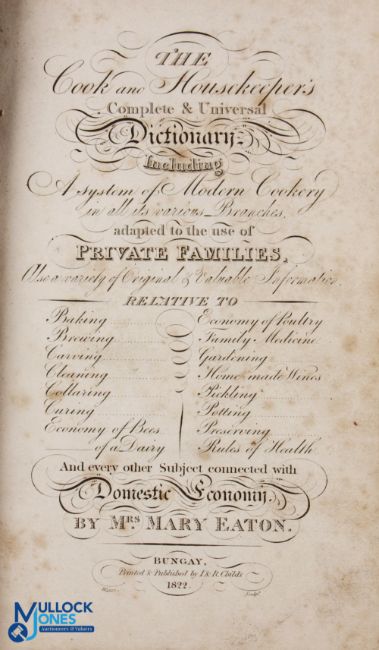 THE
Cook and Housekeeper's
Complete & Universal
Dictionary;
Including
A system of Modern Cookery
in all its various Branches,
adapted to the use of
PRIVATE FAMILIES,
Also a variety of Original & Valuable Information.
RELATIVE TO
Baking
Brewing
Carving
Cleaning
Collaring
Curing
Economy of Bees
of a Dairy
Economy of Poultry
Family Medicine
Gardening
Home-made Wines
Pickling
Potting
Preserving
Rules of Health
And every other Subject connected with
Domestic Economy.
BY MRS MARY EATON.
BUNGAY,
Printed & Published by J & R Childs
1822
Sculpt.
MULLOCK
JONES
Auctioneers & Valuers